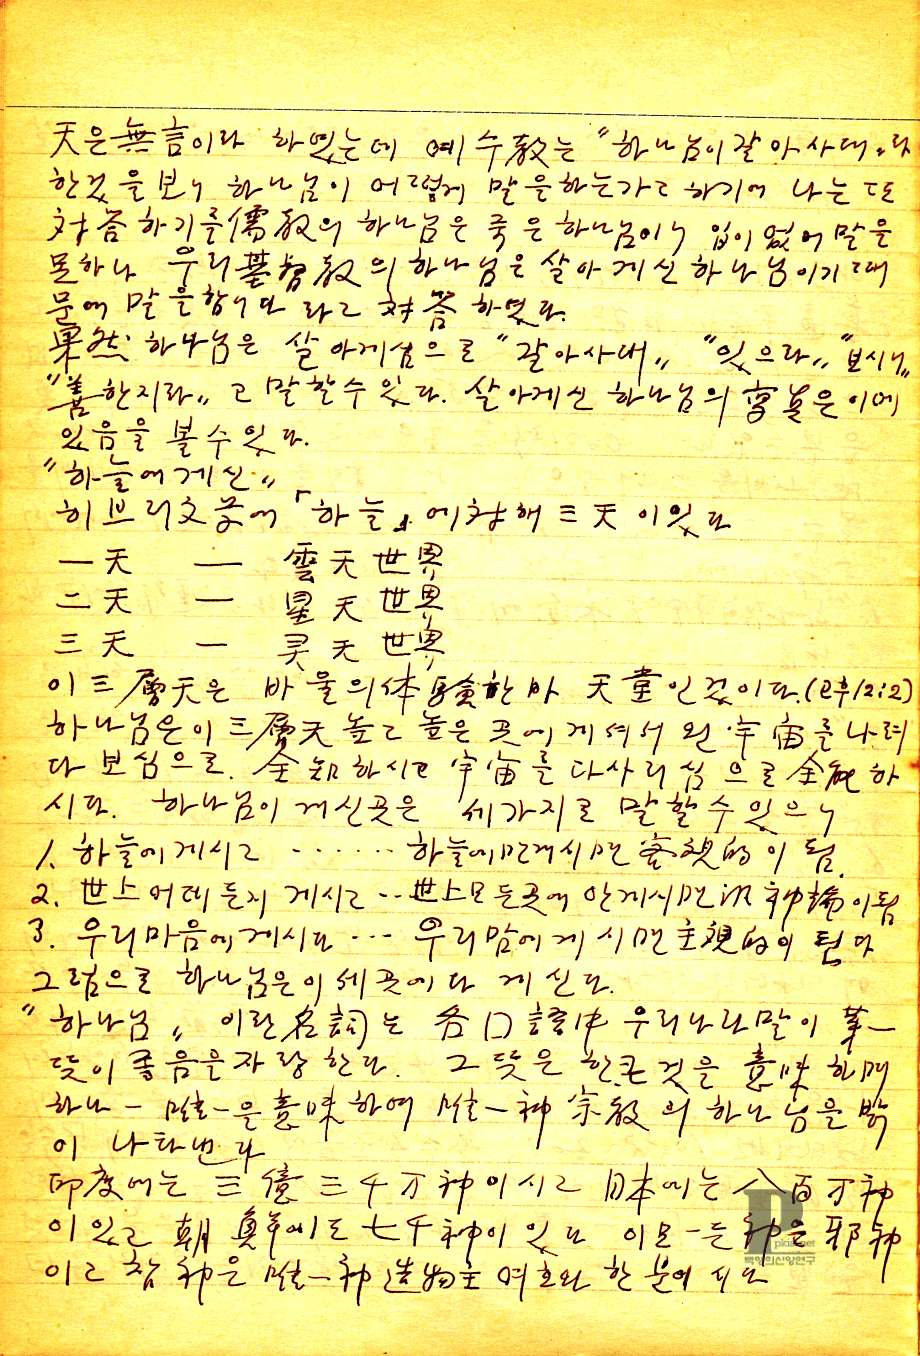 天은無言이라 하였는데 예수敎는 "하나님이 갈아사대" 라
한것을 보니 하나님이 어떻게 말을하는가고 하기에 나는 또
対答하기를 儒敎의 하나님은 죽은 하나님이니 입이 없어 말을
못하나 우리 基督敎의 하나님은 살아 게신 하나님이기 때
문에 말을합니다 라고 対答 하였다.
果然 하나님은 살아게심으로 "갈아사대" "있으라" "보시니"
"善한지라" 고 말할수있다. 살아게신 하나님의 은 이에
있음을 볼수있다.
"하늘에 게신"
히브리文学에 「하늘」에 対해 三天이있다
一天 — 雲天世界
二天 — 星天世界
三天 — 灵天世界
이 三層天은 바울의 体驗한바 天堂인것이다.(고후12:2)
하나님은 이 三層天 높고 높은 곳에 게셔서 왼 宇宙를 나려
다 보심으로. 全知하시고 宇宙를 다사리심으로 全能하
시다. 하나님이 게신곳은 세가지로 말할수있으니
1. 하늘에 게시고 ‥‥‥ 하늘에만게시면 客観的이 됨.
2. 世上 어데든지 게시고 ‥ 世上모든곳에 안게시면 汎神論이됨
3. 우리마음에게시다 ‥‥ 우리맘에 게시면 主観的이 된다
그럼으로 하나님은 이 세곳에 다 게신다.
"하나님" 이란 名詞는 各口語中 우리나라말이 第一
뜻이 좋음을 자랑한다. 그 뜻은 한큰것을 意味하며
하나 - 唯一을 意味하여 唯一神 宗敎의 하나님을 밝
이 나타낸다
印度에는 三億三千万神이시고 日本에는 八百万神
이있고 朝鮮에도 七千神이 있다 이모-든 神은 邪神
이고 참神은 唯一神 造物主 여호와 한분이시다
백영희신앙연구